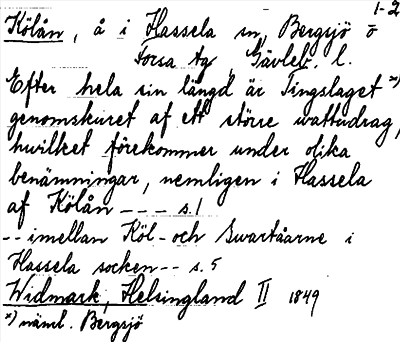 1-2
Kölån, å i Hassela sn, Bergsjö o
Forsa tg, Gävleb. l.
Efter hela sin längd är Tingslaget x)
genomskuret af ett större wattudrag,
hwilket förekommer under olika
benämningar, nemligen i Hassela
af Kölån --- s. 1
-- imellan Köl- och Swartåarne i
Hassela socken -- s. 5
Widmark, Helsingland II 1849
x) näml. Bergsjö